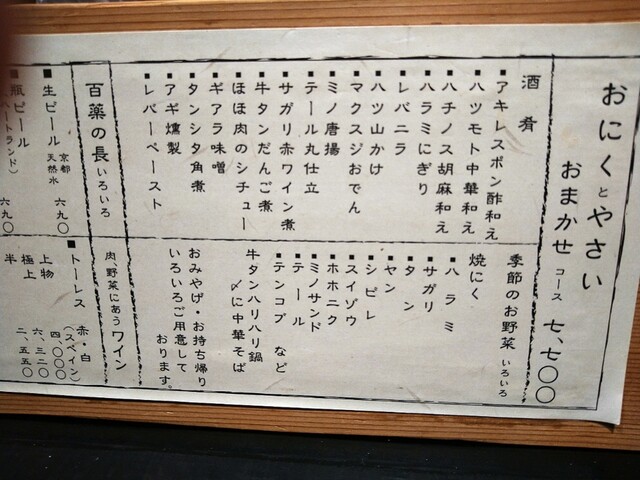 おにくとやさい
おまかせ コース 七、七〇〇
酒肴
■アキレスポン酢和え
■ハツモト中華和え
■ハチノス胡麻和え
■ハラミにぎり
■レバニラ
■ハツ山かけ
■マクスジおでん
■ミノ唐揚
■テール丸仕立
■サガリ赤ワイン煮
■牛タンだんご煮
■ほほ肉のシチュー
■ギアラ味噌
■タンシタ角煮
■アギ燻製
■レバーペースト
季節のお野菜 いろいろ
焼にく
■ハラミ
■サガリ
■タン
■ヤン
■シビレ
■スイゾウ
■ホホニク
■ミノサンド
■テール
■テンコブ など
牛タンハリハリ鍋
〆に中華そば
おみやげ・お持ち帰り
いろいろご用意して
おります。
百薬の長 いろいろ
■生ビール 京都天然水 六九〇
■瓶ビール
ハートランド) 六九〇
肉、野菜にあう ワイン
■トーレス 赤・白
(スペイン)
上物 四、〇〇〇
極上 六、三二〇
半 二、五五〇